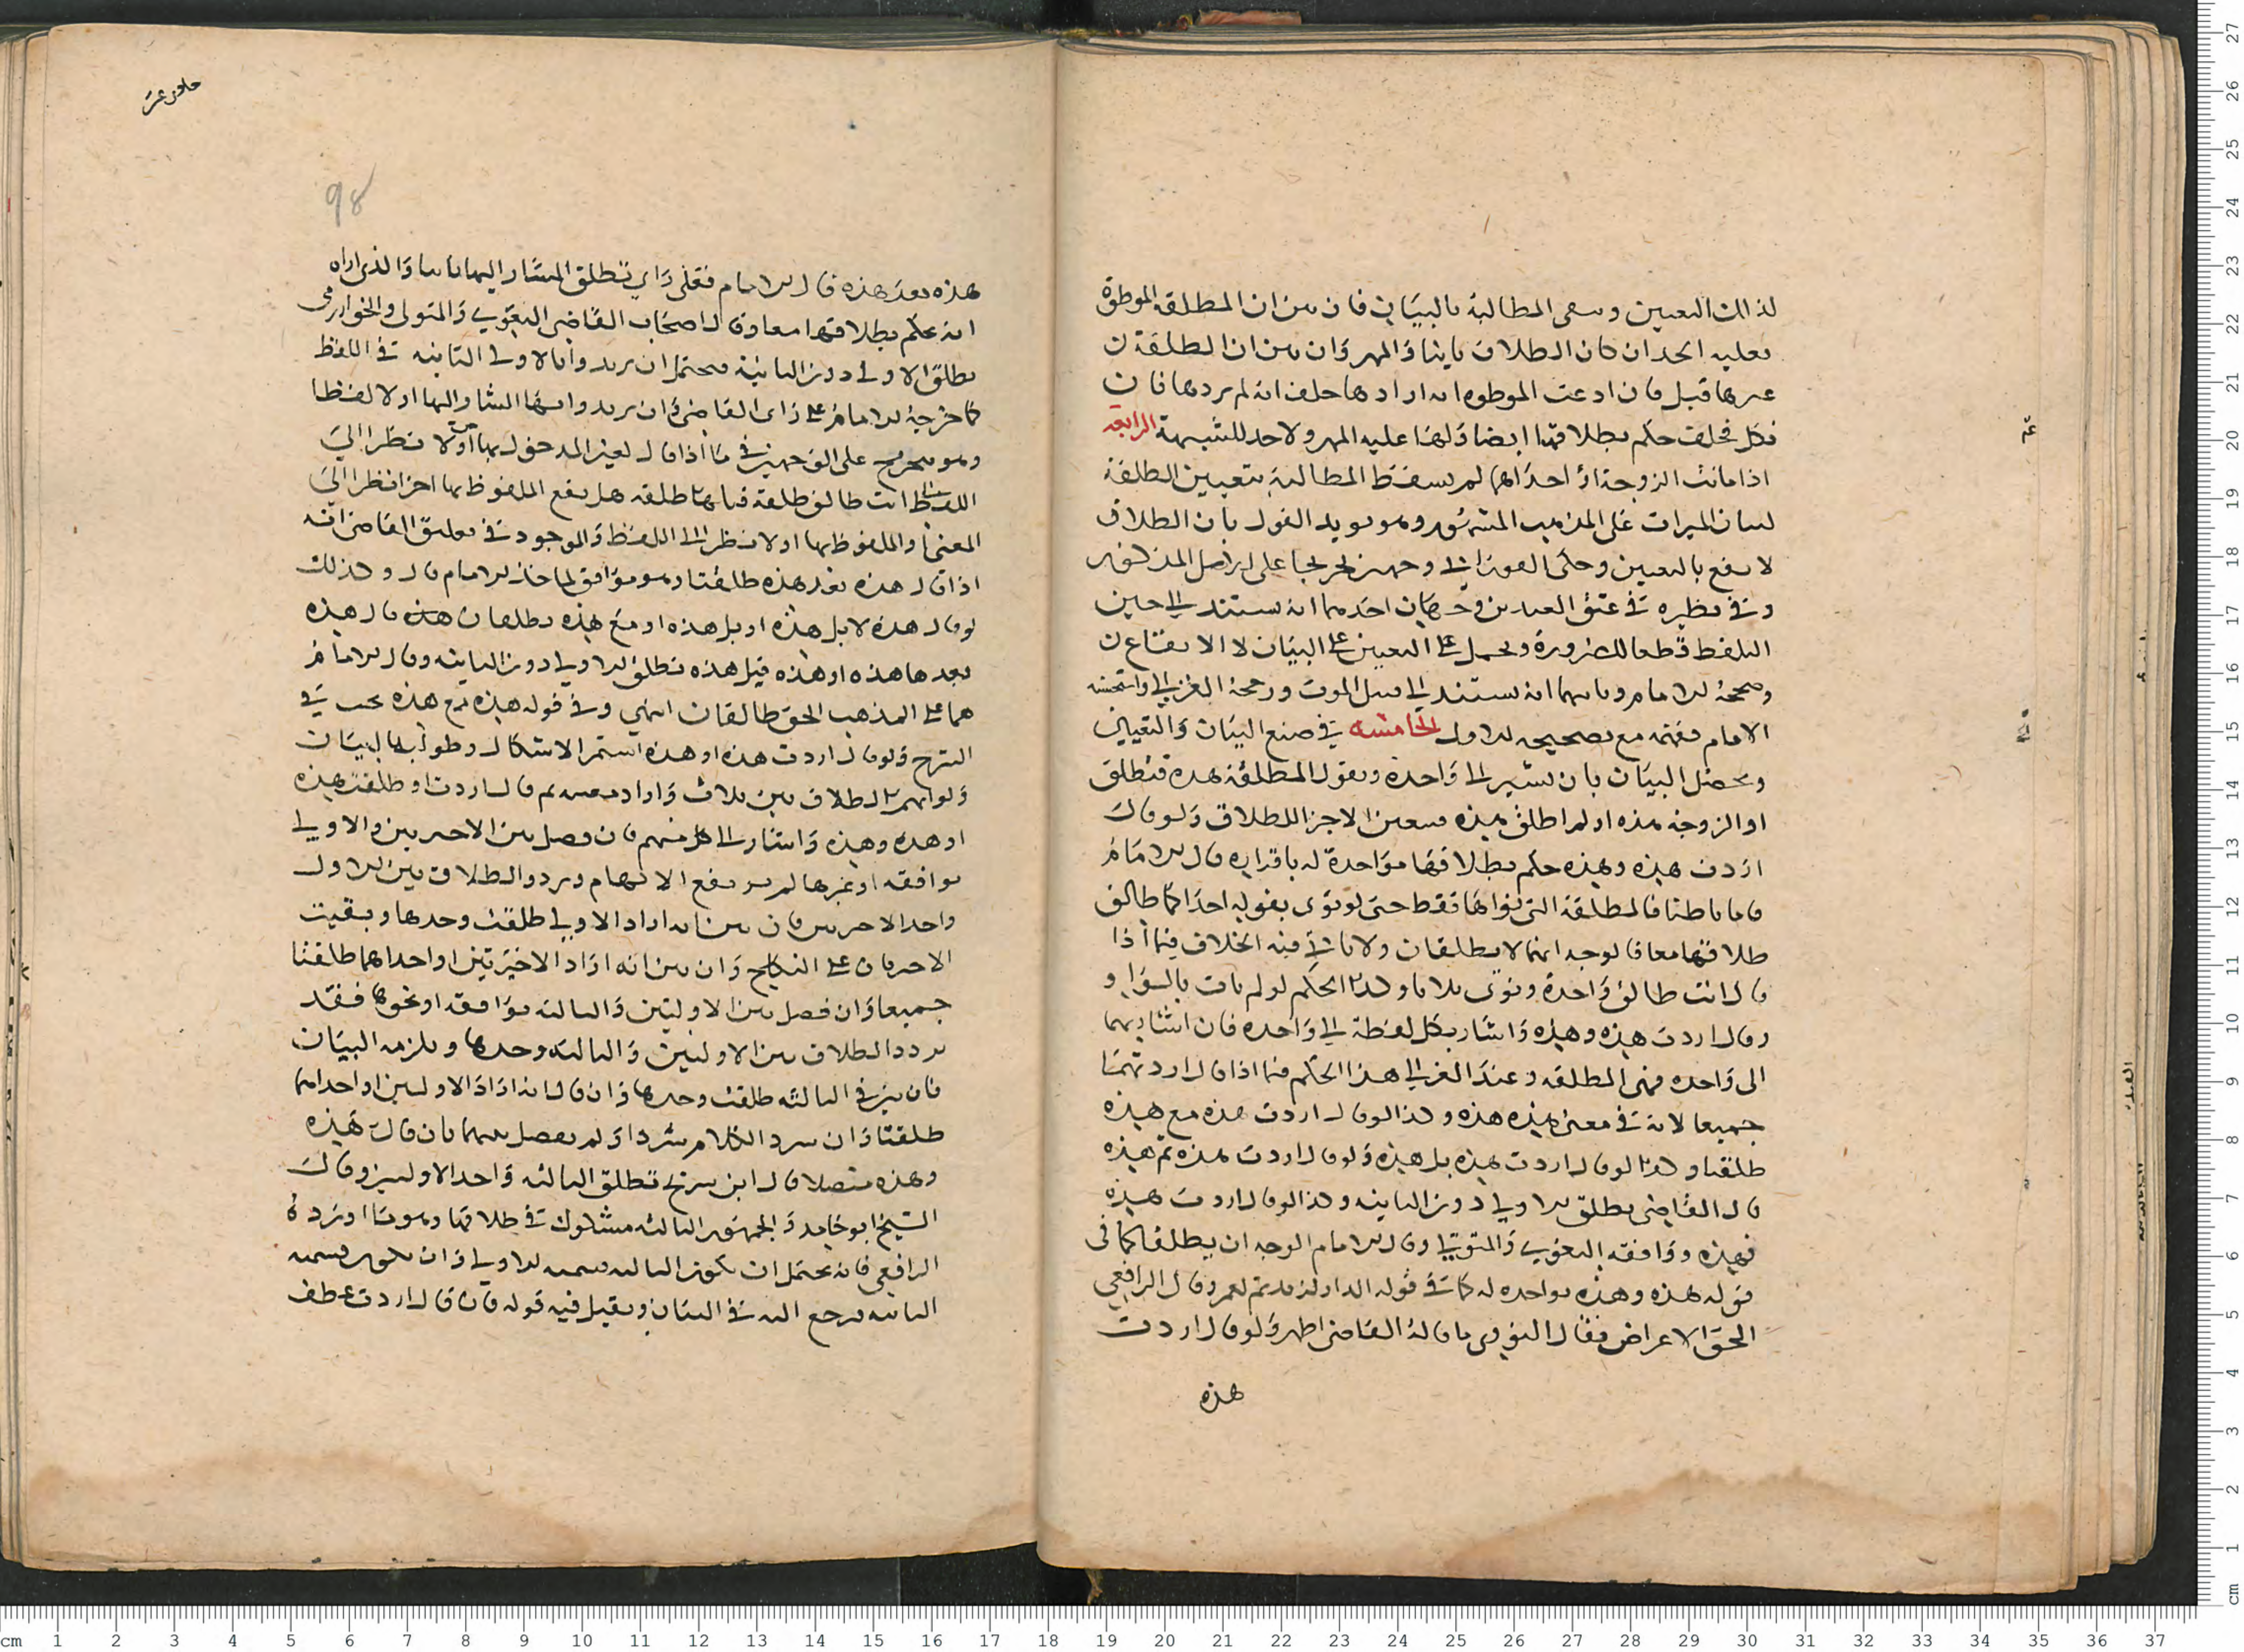 لذلك التعيين وسقى المطالبة بالبيان فان بين ان المطلقة الموطوة
فعليه الحد ان كان الطلاق باينا والمهر وان بين ان المطلقة
غيرها قبل فان ادعت الموطوه انه ارادها حلف انه لم يردها فان
نكل فحلفت حكم بطلاقها ايضا ولها عليه المهر ولا حد للشبهة الرابعة
اذا ماتت الزوجة او احداهما لم يسقط المطالبة بتعيين المطلقة
لبيان الميراث على المذهب المشهور وهو يويد القول بان الطلاق
لا يقع بالتعيين وحكى الفوراني وجهين تخريجا على اصل المذكور
وفي نظيره في عتق العبدين وجهان احدهما انه يستند الى حين
التلفظ قطعا للضرورة ويحمل على التعيين على البيان لا الايقاع
وصححه الامام وثانيهما انه يستند الى قبيل الموت ورجحه الغزالي واستحسنه
الامام مع تصحيحه الاول الخامسة في صيغ البيان والتعيين
ويحصل البيان بان يشير الى واحدة ويقول المطلقة هذه فتطلق
او الزوجة هذه او لم اطلق هذه فيتعين الاخرى للطلاق ولو قال
اردت هذه وهذه حكم بطلاقهما مواخذة له باقراره قال الامام
فاما باطنا فالمطلقة التي نواها فقط حتى لو نوى بقوله احداكما طالق
طلاقهما معا فالوجه انهما لا يطلقان ولا ياتي فيه الخلاف فيما اذا
قال انت طالق واحدة ونوى ثلاثا وكذا الحكم لو لم يات بالواو
وقال اردت هذه وهذه واشار بكل لفظة الى واحدة فان اشار بهما
الى واحده فهى المطلقه وعند الغزالي هذا الحكم فيما اذا قال اردتهما
جميعا لانه في معنى هذه هذه وكذا لو قال اردت هذه مع هذه
طلقتا وكذا لو قال اردت هذه بل هذه ولو قال اردت هذه ثم هذه
قال القاضى تطلق الاولى دون الثانيه وكذا لو قال اردت هذه
فهذه ووافقه البغوي والمتولي وقال الامام الوجه ان يطلقا كما في
قوله هذه وهذه مواخذه له كما في قوله الدار لزيد ثم لعمرو قال الرافعي
الحق الاعتراض فقال النووى ما قاله القاضى اظهر ولو قال اردت
هذه
98
هذه بعد هذه قال الامام فعلى راي تطلق المشار اليها ثانيا والذى اراه
انه يحكم بطلاقهما معا وقال اصحاب القاضى البغوي والمتولى والخوارزمى
تطلق الاولى دون الثانية فيحتمل ان يريدوا بالاولى الثانيه في اللفظ
كما خرجه الامام على راى القاضى وان يريدوا بها المشار اليها اولا لفظا
وهو يتخرج على الوجهين في ما اذا قال لغير المدخول بها اولا نظرا الى
اللفظ انت طالق طلقة قبلها طلقه هل يقع الملفوظ بها اخرا نظرا الى
المعنى او الملفوظ بها اولا نظرا الى اللفظ والموجود في تعليق القاضى انه
اذا قال هذه بعد هذه طلقتا وهو موافق لما اختاره الامام قال وكذلك
لو قال هذه لا بل هذه او بل هذه او مع هذه يطلقان قال هذه
بعدها هذه او هذه قبل هذه تطلق الاولى دون الثانيه وقال الامام
هما على المذهب الحق طالقان انتهي وفي قوله هذه مع هذه بحث في
الشرح ولو قال اردت هذه او هذه استمر الاشكال وطولب بالبيان
ولو ابهم الطلاق بين ثلاث واراد معينه ثم قال اردت او طلقت هذه
او هذه وهذه واشار الى كل منهم فان فصل بين الاخيرتين والاولى
بوقفه او غيرها لم يرتفع الابهام وتردد الطلاق بين الاولى
واحد الاخريين فان بين انه اراد الاولى طلقت وحدها وبقيت
الاخريان على النكاح وان بين انه اراد الاخيرتين او احداهما طلقتا
جميعا وان فصل بين الاوليين والثالثه بوقفه او نحوها فقد
تردد الطلاق بين الاوليين والثالثه وحدها ويلزمه البيان
فان بين في الثالثه طلقت وحدها وان قال انه اراد الاوليين او احداهما
طلقتا وان سرد الكلام سردا ولم يفصل بينهما بان قال هذه
وهذه متصلا قال ابن سريج تطلق الثالثه واحد الاوليين وقال
الشيخ ابو حامد والجمهور الثالثه مشكوك في طلاقها وهو ما اورده
الرافعي فانه يحتمل ان تكون الثالثه الاولى وان تكون
الثانيه فيرجع اليه في البيان ويقبل فيه قوله فان قال اردت عطف